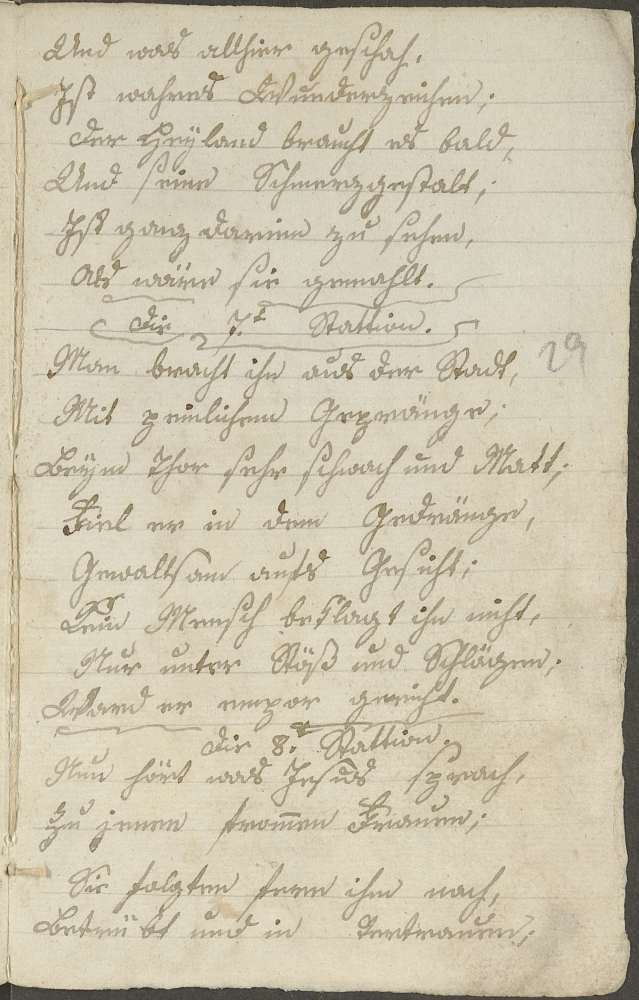 Und was allhier geschah,
Ist wahres Wunderzeichen;
der Heyland braucht es bald,
Und seine Schmerzgestalt,
Ist ganz darinn zu sehen,
Als wäre sie gemahlt.
Die 7.t Stattion.
29
Man bracht ihn aus der Stadt,
Mit peinlichem Gepränge;
Beÿm Thor sehr schwach und Matt,
Fiel er in dem Gedränge,
Gewaltsam aufs Gesicht;
Kein Mensch beklagt ihn nicht,
Nur unter Stöß und Schlägen,
Ward er empor gericht.
Die 8.t Stattion.
Nun hört was Jesus sprach,
Zu jenen from̅en Frauen;
Sie folgten fern ihm nach,
Betrübt und in Vertrauen;